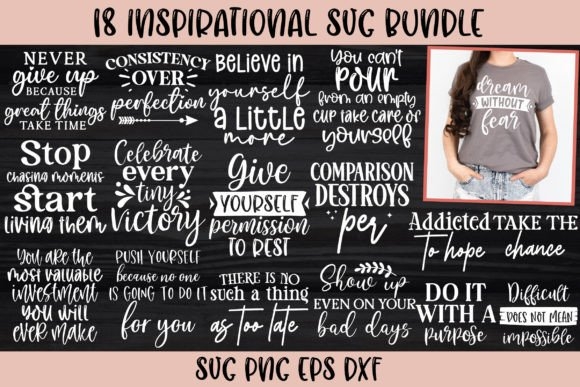 18 INSPIRATIONAL SVG BUNDLE
NEVER
give up
BECAUSE
great things
TAKE TIME
CONSISTENCY
OVER
perfection
Believe in
yourself
a little
more
You can't
POUR
from an empty
cup take care of
yourself
dream
WITHOUT
fear
Stop
chasing moments
start
living them
Celebrate
every
tiny
Victory
Give
YOURSELF
permission
TO REST
COMPARISON
DESTROYS
per
Addicted
To hope
TAKE THE
chance
You are the
most valuable
investment
you will
ever make
PUSH YOURSELF
because no one
IS GOING TO DO IT
for you
THERE IS NO
such a thing
as too late
Show up
EVEN ON YOUR
bad days
DO IT
WITH A
purpose
Difficult
DOES NOT MEAN
impossible
SVG PNG EPS DXF